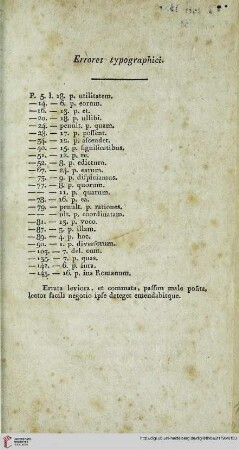 Errores typographici.
P. 5. l. 28. p. utilitatem.
—14. — 6. p. eorum.
—16. — 15. p. et.
—20. — 18. p. ullibi.
—24. — penult. p. quam.
—28. — 17. p. possent.
—34. — 12. p. ascendet.
—40. — 15. p. significatibus.
—51. — 12. p. re.
—52. — 8. p. edictum.
—67. — 24. p. earum.
—75. — 9. p. dispicimus.
—77. — 8. p. quorum.
— 11. p. quarum.
—78. — 16. p. ea.
—79. penult. p. rationes.
— ult. p. coordinatam.
—81. — 15. p. voco.
—87. — 5. p. illam.
—89. — 4. p. hoc.
—90. — 1. p. diversorum.
—105. — 7. del. cum.
—135. — 7. p. quas.
—142. — 6. p. iura.
—143. — 16. p. ius Romanum.
Errata leviora, et commata, passim male posita,
lector facili negotio ipse deteget emendabitque.